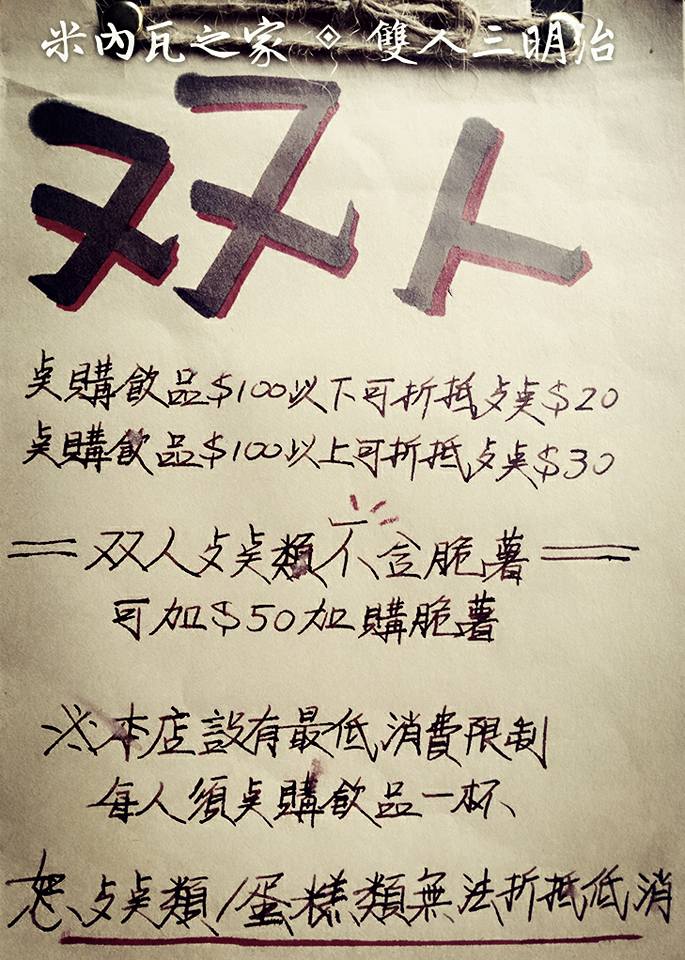 米內瓦之家 ◈ 雙人三明治
双人
点購飲品$100以下可折抵歺点$20
点購飲品$100以上可折抵歺点$30
双人歺点類不含脆薯
可加$50加購脆薯
※本店設有最低消費限制
每人須点購飲品一杯、
恕歺点類/蛋糕類無法折抵低消